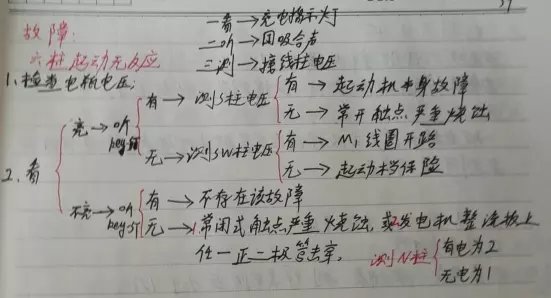 故障:
六柱起动无反应
一看→充电指示灯
二听→回吸合声
三测→接线柱电压
1、检查电瓶电压;
2、看
充→听 key ST
有→测S柱电压
有→起动机本身故障
无→常开触点严重烧蚀
无→测SW柱电压
有→M1线圈开路
无→起动档保险
不充→听 key ST
有→不存在该故障
无→1.常闭式触点严重烧蚀,或2.发电机整流板上
任一正二极管击穿。
测N柱
有电为2
无电为1